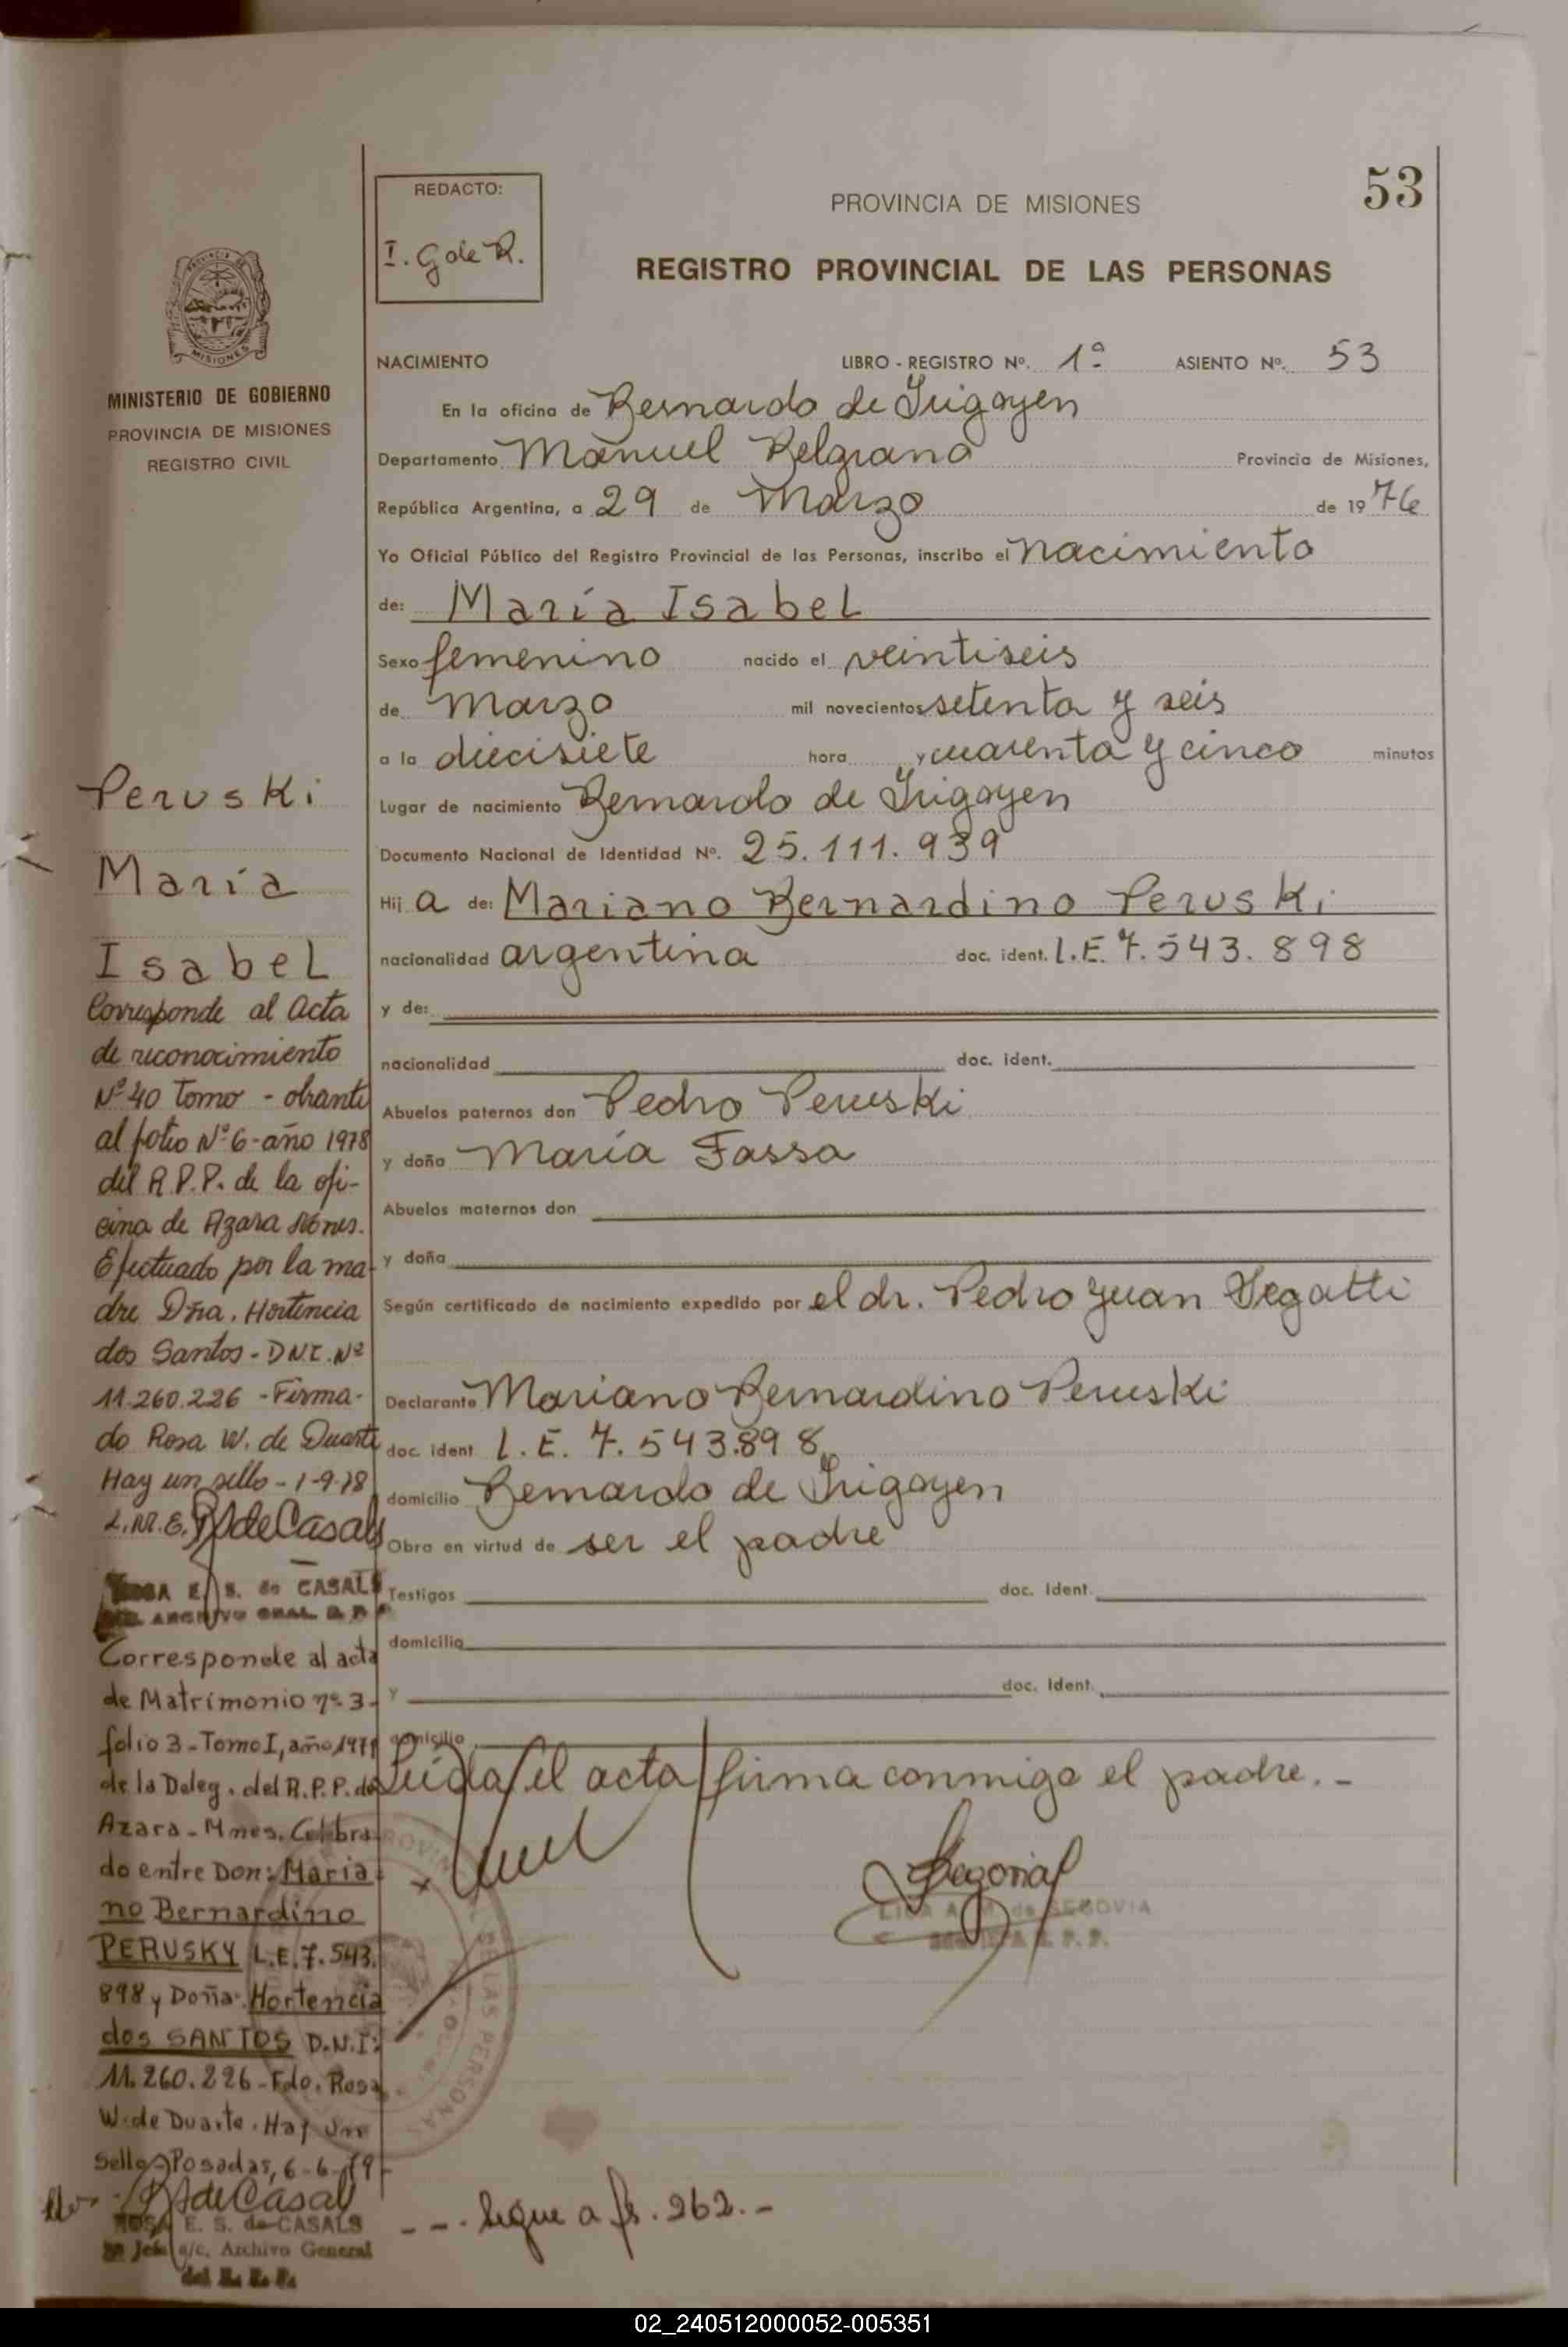 53
REDACTO:
I. G de R.
PROVINCIA DE MISIONES
REGISTRO PROVINCIAL DE LAS PERSONAS
MISIONES
MINISTERIO DE GOBIERNO
PROVINCIA DE MISIONES
REGISTRO CIVIL
NACIMIENTO LIBRO - REGISTRO Nº. 1º ASIENTO Nº. 53
En la oficina de Bernardo de Irigoyen
Departamento Manuel Belgrano Provincia de Misiones,
República Argentina, a 29 de Marzo de 1976
Yo Oficial Público del Registro Provincial de las Personas, inscribo el nacimiento
de: María Isabel
Sexo femenino nacido el veintiseis
de Marzo mil novecientos setenta y seis
a la diecisiete hora y cuarenta y cinco minutos
Lugar de nacimiento Bernardo de Irigoyen
Documento Nacional de Identidad Nº. 25.111.939
Hij a de: Mariano Bernardino Peruski
nacionalidad argentina doc. ident. L.E. 7.543.898
y de:
nacionalidad doc. ident.
Abuelos paternos don Pedro Peruski
y doña María Fassa
Abuelos maternos don
y doña
Según certificado de nacimiento expedido por el dr. Pedro Juan Segatti
Declarante Mariano Bernardino Peruski
doc. ident L.E. 7.543.898
domicilio Bernardo de Irigoyen
Obra en virtud de ser el padre
Testigos doc. Ident.
domicilio
y doc. Ident.
domicilio
Leída el acta firma conmigo el padre.-
de SEGOVIA
R. P. P.
--. Sigue a fs. 262.-
Peruski
María
Isabel
Corresponde al Acta
de reconocimiento
Nº 40 Tomo - obrante
al folio Nº 6 - año 1978
del R.P.P. de la ofi-
cina de Azara Mones.
Efectuado por la ma-
dre Dña. Hortencia
dos Santos - DNI. Nº
11.260.226 - Firma-
do Rosa W. de Duarte
Hay un sello - 1-9-78
L.M.E. de Casals
ROSA E. S. de CASALS
ARCHIVO GRAL. R. P. P.
Corresponde al acta
de Matrimonio nº 3-
folio 3 - Tomo I, año 1979
de la Deleg. del R.P.P. de
Azara - Mnes. Celebra-
do entre Don: Maria-
no Bernardino
PERUSKY L.E. 7.543.
898 y Doña: Hortencia
dos SANTOS D.N.I:
11.260.226 - Fdo. Rosa
W. de Duarte. Hay un
Sello Posadas, 6-6-79-
de Casals
ROSA E. S. de CASALS
Jefe a/c. Archivo General
del R. P. P.
02_240512000052-005351